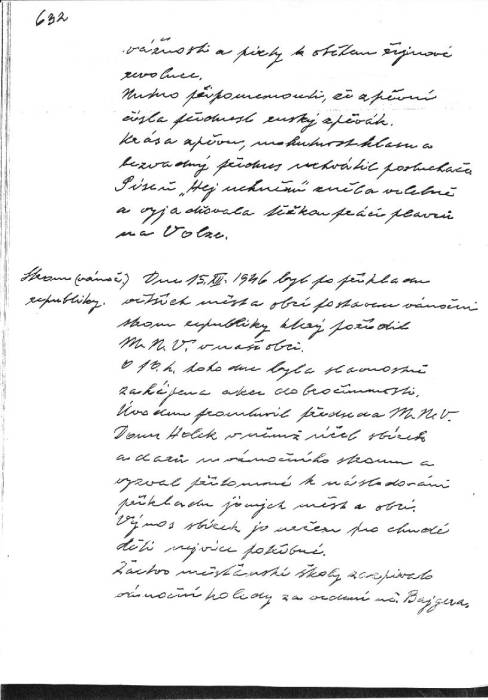 632
vážnosti a piety k obětem říjnové
revoluce.
Nutno připomenouti, že zpěvní
čísla přednesl ruský zpěvák.
Krása zpěvu, mohutnost hlasu a
bezvadný přednes uchvátil posluchače.
Píseň „Hej uchněm zněla velebně
a vyjadřovala těžkou práci plavců
na Volze.
Strom (vánoč.)
republiky.
Dne 15.XII. 1946 byl po příkladu
větších měst a obcí postaven vánoční
strom republiky který pořídil
M.N.V. v naší obci.
v h. toho dne byla slavnostně
zahájena akce dobročinnosti.
Úvodem promluvil předseda M.N.V.
Holek v němž účel sbírek
a darů u vánočního stromu a
vyzval přítomné k následování
příkladu jiných měst a obcí.
Výnos sbírek je určen pro chudé
děti nejvíce potřebné.
Žactvo měšťanské školy zazpívalo
vánoční koledy za vedení uč. Bajgera.